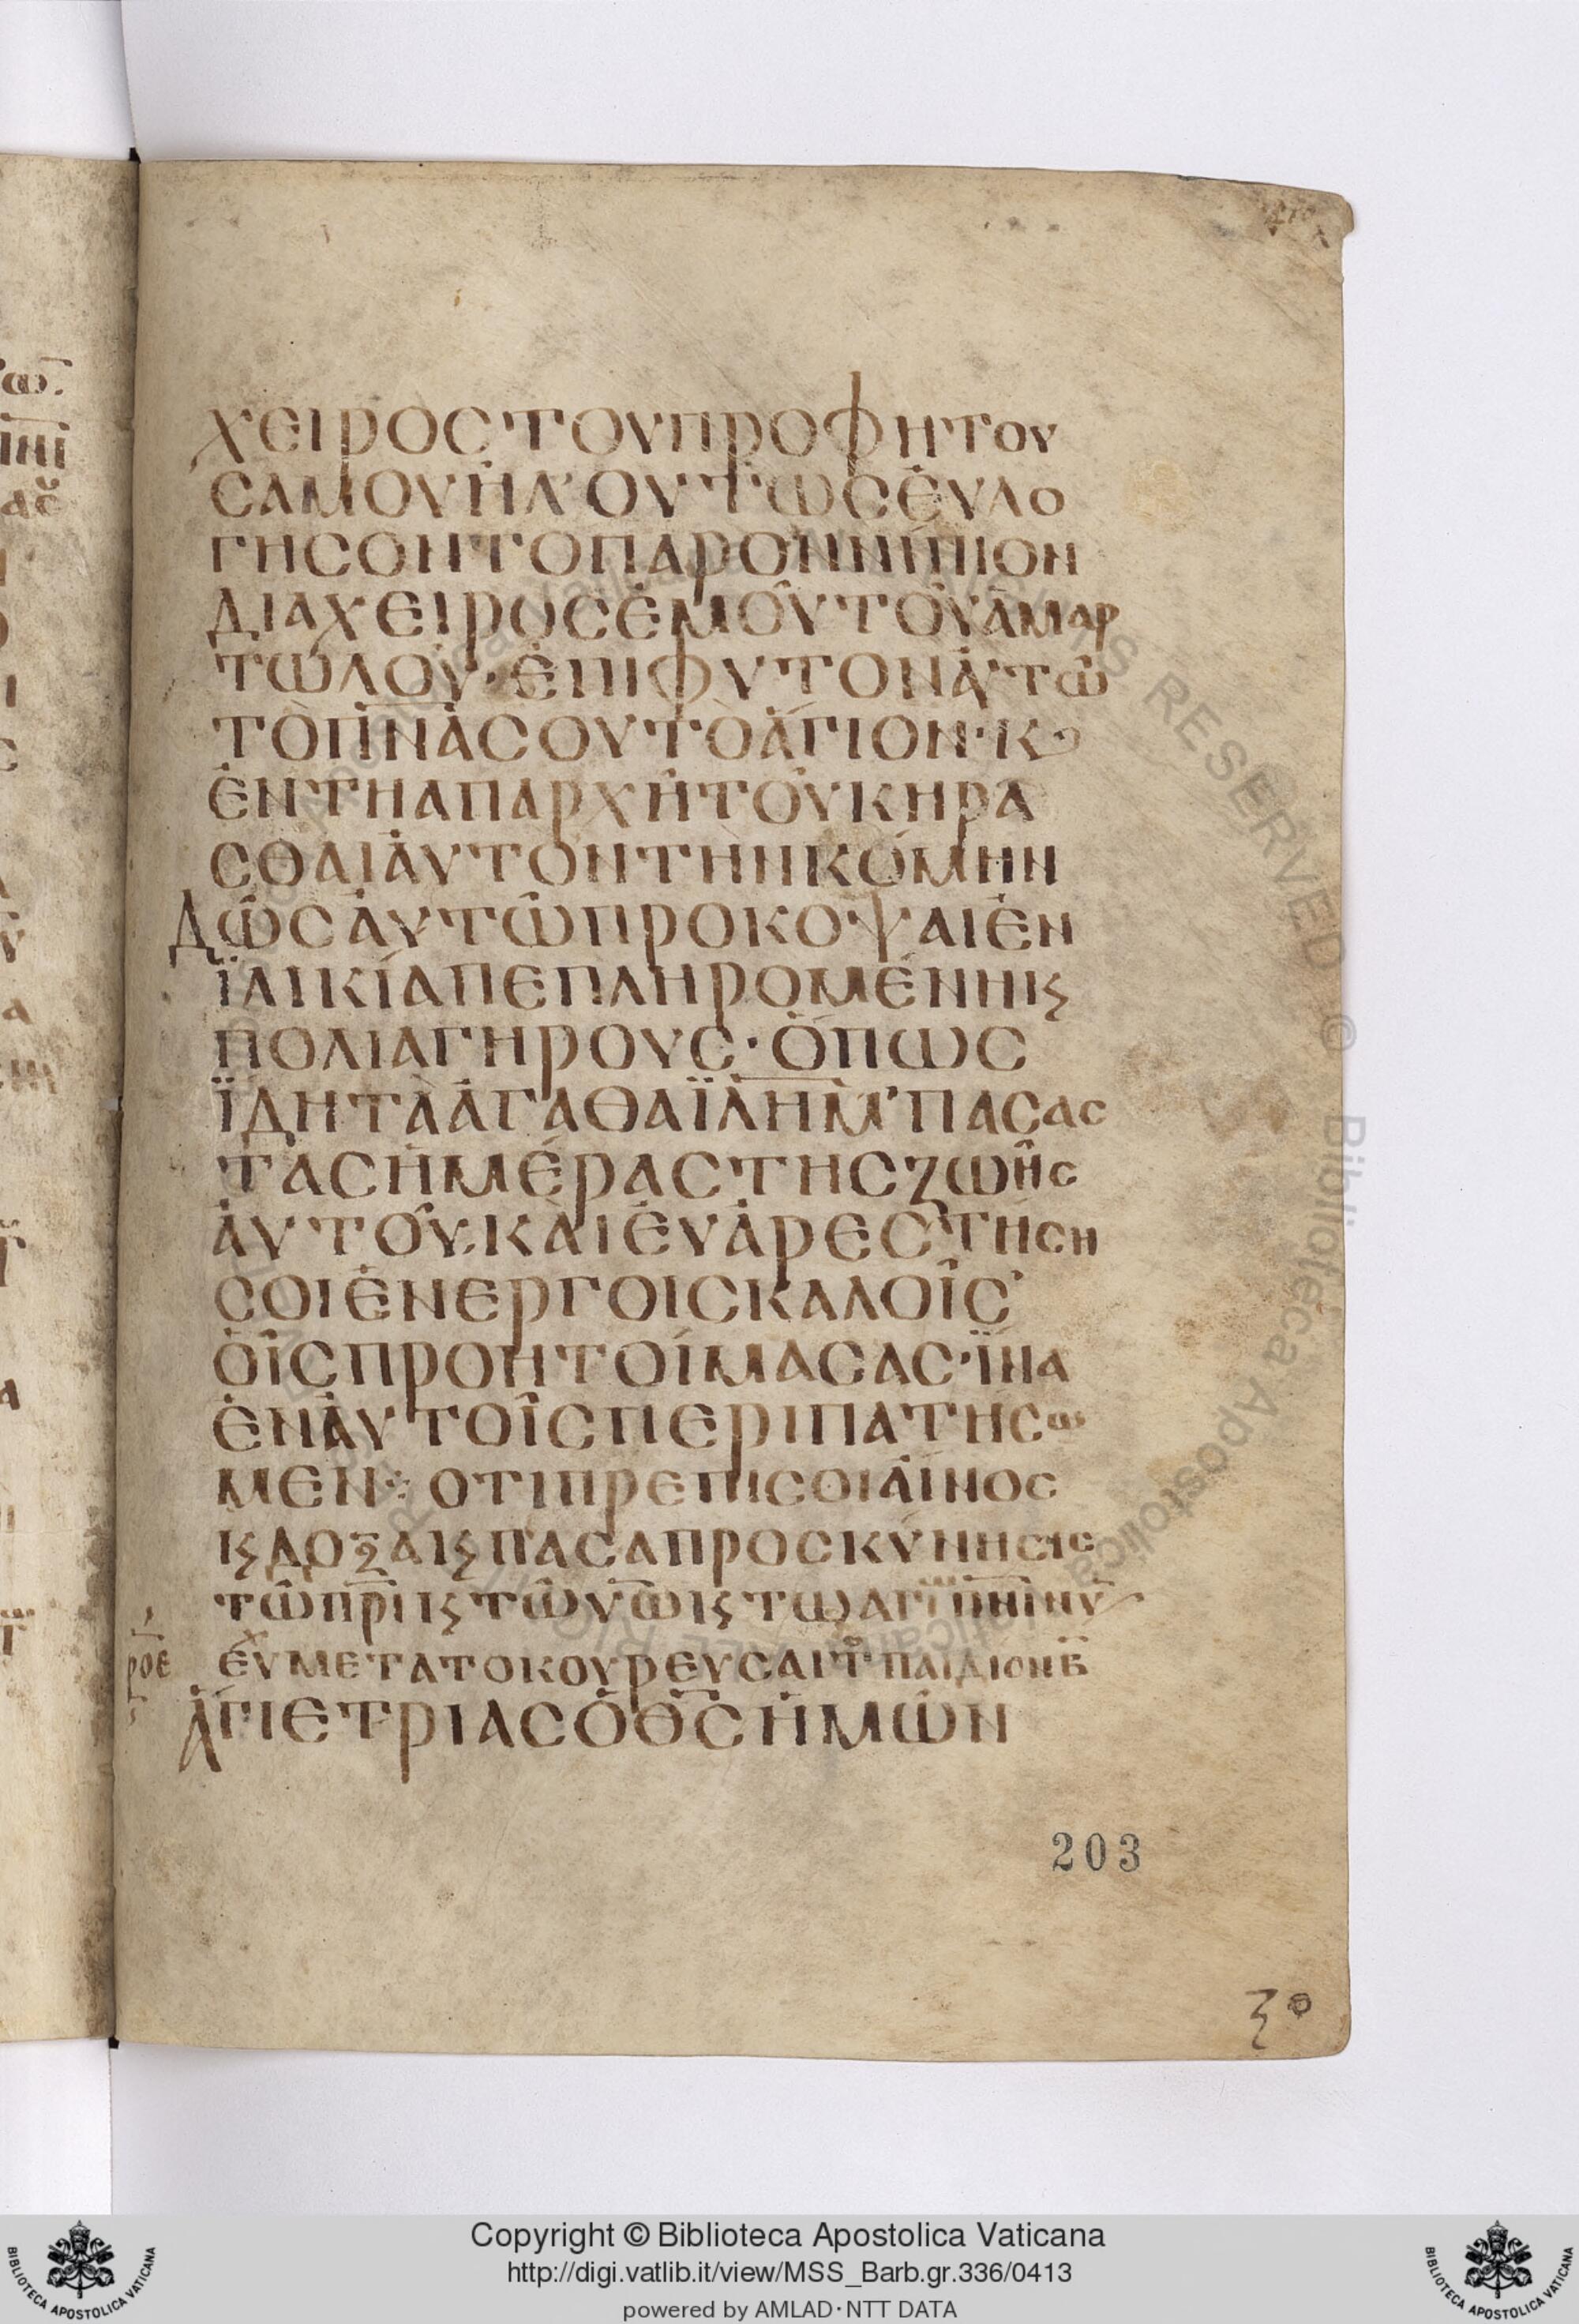 ΧΕΙΡΟC ΤΟΥ ΠΡΟΦΗΤΟΥ
CΑΜΟΥΗΛ' ΟΥΤΩC ΕΥΛΟ
ΓΗCΟΝ ΤΟ ΠΑΡΟΝ ΝΗΠΙΟΝ
ΔΙΑ ΧΕΙΡΟC ΕΜΟΥ ΤΟΥ ΑΜΑΡ
ΤΩΛΟΥ· ΕΠΙΦΥΤΟΝ ΑΥΤΩ
ΤΟ Π̅Ν̅Α̅ CΟΥ ΤΟ ΑΓΙΟΝ· Κ
ΕΝ ΤΗ ΑΠΑΡΧΗ ΤΟΥ ΚΗΡΑ
CΘΑΙ ΑΥΤΟΝ ΤΗΝ ΚΟΜΗΝ
ΔΩC ΑΥΤΩ ΠΡΟΚΟΨΑΙ ΕΝ
ΪΛΙΚΙΑ ΠΕΠΛΗΡΟΜΕΝΗ Κϛ
ΠΟΛΙΑ ΓΗΡΟΥC· ΟΠΩC
ΪΔΗ ΤΑ ΑΓΑΘΑ Ϊ̅Λ̅Η̅Μ̅' ΠΑCΑC
ΤΑC ΗΜΕΡΑC ΤΗC ΖΩΗC
ΑΥΤΟΥ· ΚΑΙ ΕΥΑΡΕCΤΗCΗ
CΟΙ ΕΝ ΕΡΓΟΙC ΚΑΛΟΙC'
ΟΙC ΠΡΟΗΤΟΙΜΑCΑC· ΪΝΑ
ΕΝ ΑΥΤΟΙC ΠΕΡΙΠΑΤΗCΩ
ΜΕΝ: ΟΤΙ ΠΡΕΠΙ CΟΙ ΑΙΝΟC
Κϛ ΔΟΞΑ Κϛ ΠΑCΑ ΠΡΟCΚΥΝΗCΙC
ΤΩ Π̅Ρ̅Ι̅ Κϛ ΤΩ Υ̅Ω̅ Κϛ ΤΩ ΑΓΙ Π̅Ν̅Ι̅ ΝΥ
ΡΟΕ ΕΥΧ ΜΕΤΑ ΤΟ ΚΟΥΡΕΥCΑΙ Τ ΠΑΙΔΙΟΝ Β
ΑΓΙΕ ΤΡΙΑC Ο Θ̅C̅ ΗΜΩΝ
203
Copyright © Biblioteca Apostolica Vaticana
http://digi.vatlib.it/view/MSS_Barb.gr.336/0413
powered by AMLAD·NTT DATA
BIBLIOTECA APOSTOLICA VATICANA
BIBLIOTECA APOSTOLICA VATICANA